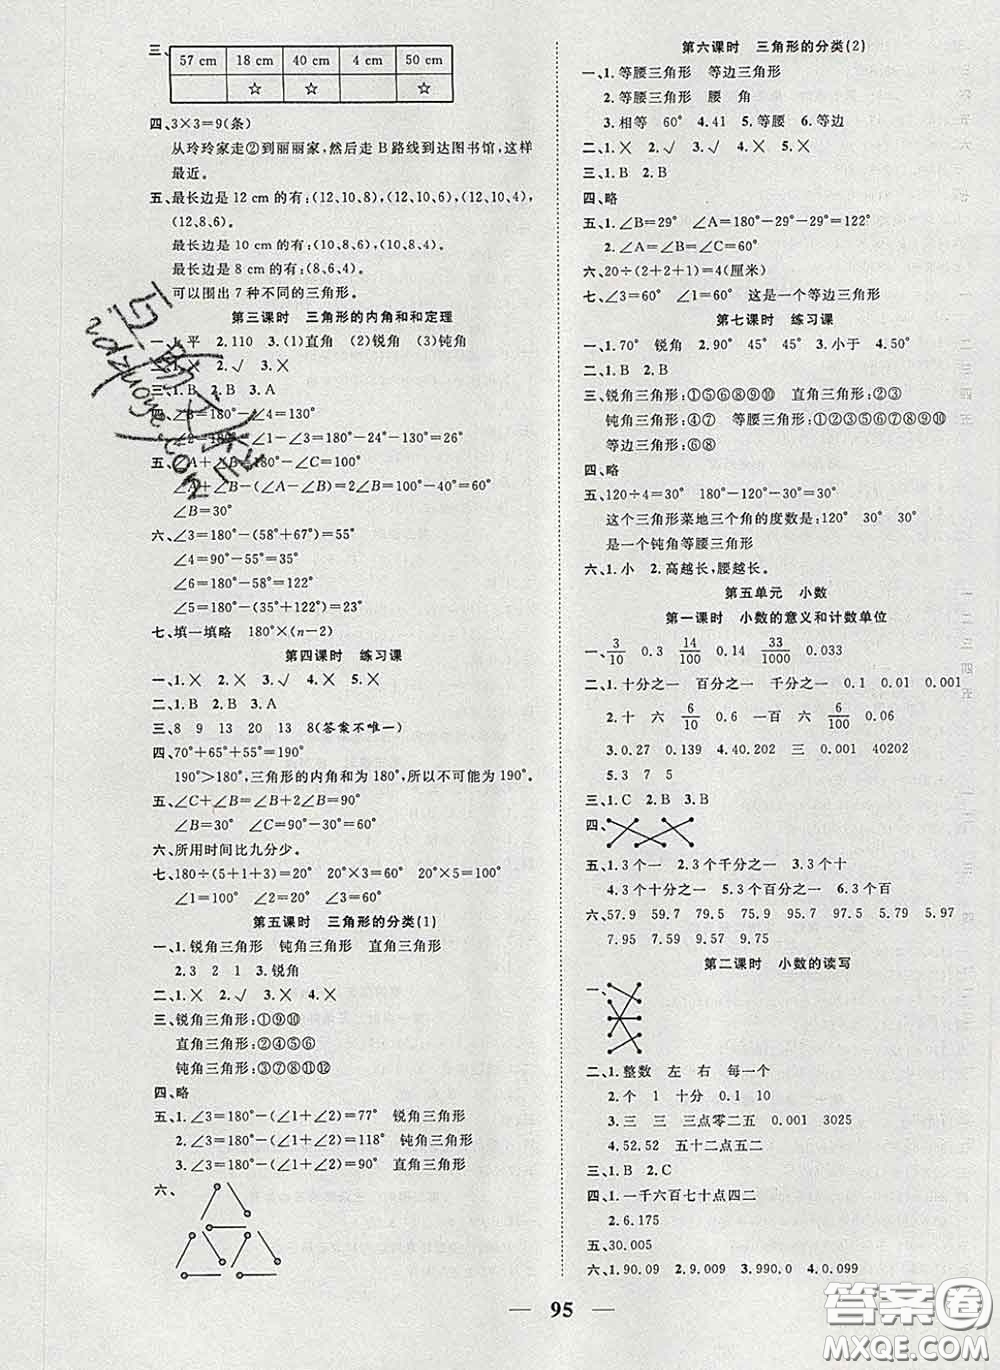 三、
57 cm 18 cm 40 cm 4 cm 50 cm
☆ ☆ ☆
四、3×3=9(条)
从玲玲家走②到丽丽家,然后走B路线到达图书馆,这样
最近。
五、最长边是12 cm的有:(12,10,8),(12,10,6),(12,10,4),
(12,8,6)。
最长边是10 cm的有:(10,8,6),(10,8,4)。
最长边是8 cm的有:(8,6,4)。
可以围出7种不同的三角形。
第三课时 三角形的内角和和定理
一、1.平 2.110 3.(1)直角 (2)锐角 (3)钝角
二、1.× 2.√ 3.× 4.×
三、1.B 2.B 3.A
四、∠3=180°-∠4=130°
∠2=180°-∠1-∠3=180°-24°-130°=26°
五、∠A+∠B=180°-∠C=100°
∠A+∠B-(∠A-∠B)=2∠B=100°-40°=60°
∠B=30°
六、∠3=180°-(58°+67°)=55°
∠4=90°-55°=35°
∠6=180°-58°=122°
∠5=180°-(35°+122°)=23°
七、填一填略 180°×(n-2)
第四课时 练习课
一、1.× 2.× 3.√ 4.× 5.×
二、1.B 2.B 3.A
三、8 9 13 20 13 8(答案不唯一)
四、70°+65°+55°=190°
190°>180°,三角形的内角和为180°,所以不可能为190°。
五、∠C+∠B=∠B+2∠B=90°
∠B=30° ∠C=90°-30°=60°
六、所用时间比九分少。
七、180÷(5+1+3)=20° 20°×3=60° 20°×5=100°
∠1=20° ∠2=100° ∠3=60°
第五课时 三角形的分类(1)
一、1.锐角三角形 钝角三角形 直角三角形
2.3 2 1 3.锐角
二、1.× 2.√ 3.× 4.×
三、锐角三角形:①⑨⑩
直角三角形:②④⑤⑥
钝角三角形:③⑦⑧
四、略
五、1.∠3=180°-(∠1+∠2)=77° 锐角三角形
2.∠3=180°-(∠1+∠2)=118° 钝角三角形
3.∠3=180°-(∠1+∠2)=90° 直角三角形
六、
第六课时 三角形的分类(2)
一、1.等腰三角形 等边三角形
2.等腰三角形 腰 角
3.相等 60° 4.41 5.等腰 6.等边
二、1.× 2.√ 3.√ 4.×
三、1.B 2.A
四、略
五、1.∠B=29° ∠A=180°-29°-29°=122°
2.∠A=∠B=∠C=60°
六、20÷(2+2+1)=4(厘米)
七、∠3=60° ∠4=60° 这是一个等边三角形
第七课时 练习课
一、1.70° 锐角 2.90° 45° 45° 3.小于 4.50°
二、1.B 2.A
三、锐角三角形:①⑤⑥⑧⑨⑩ 直角三角形:②③
钝角三角形:④⑦ 等腰三角形:③④⑥⑧⑨⑩
等边三角形:⑥⑧
四、略
五、120÷4=30° 180°-120°-30°=30°
这个三角形菜地三个角的度数是:120° 30° 30°
是一个钝角等腰三角形
六、1.小 2.高越长,腰越长。
第五单元 小数
第一课时 小数的意义和计数单位
一、3/10 0.3 14/100 0.14 33/1000 0.033
二、1.十分之一 百分之一 千分之一 0.1 0.01 0.001
2.十 六 6/10 0.6 一百 六 6/100 0.06
3.0.27 0.139 4.40.202 三 0.001 40202
5.3 7 5
三、1.C 2.B 3.B
四、
五、1.3个一 2.3个千分之一 3.3个十
4.3个十分之一 5.3个百分之一 6.3个百
六、57.9 57.5 79.5 75.9 95.7 97.5 5.79 5.97
7.95 7.59 9.57 9.75
第二课时 小数的读写
一、
二、1.整数 左 右 每一个
2.个 1 十分 0.1 10
3.三 三 三点零二五 0.001 3025
4.52.52 五十二点五二
三、1.B 2.C
四、1.一千六百七十点四二
2.6.175
五、30.005
六、1.90.09 2.9.009 3.990.0 4.0.099
95
答案圈
MXQE.COM